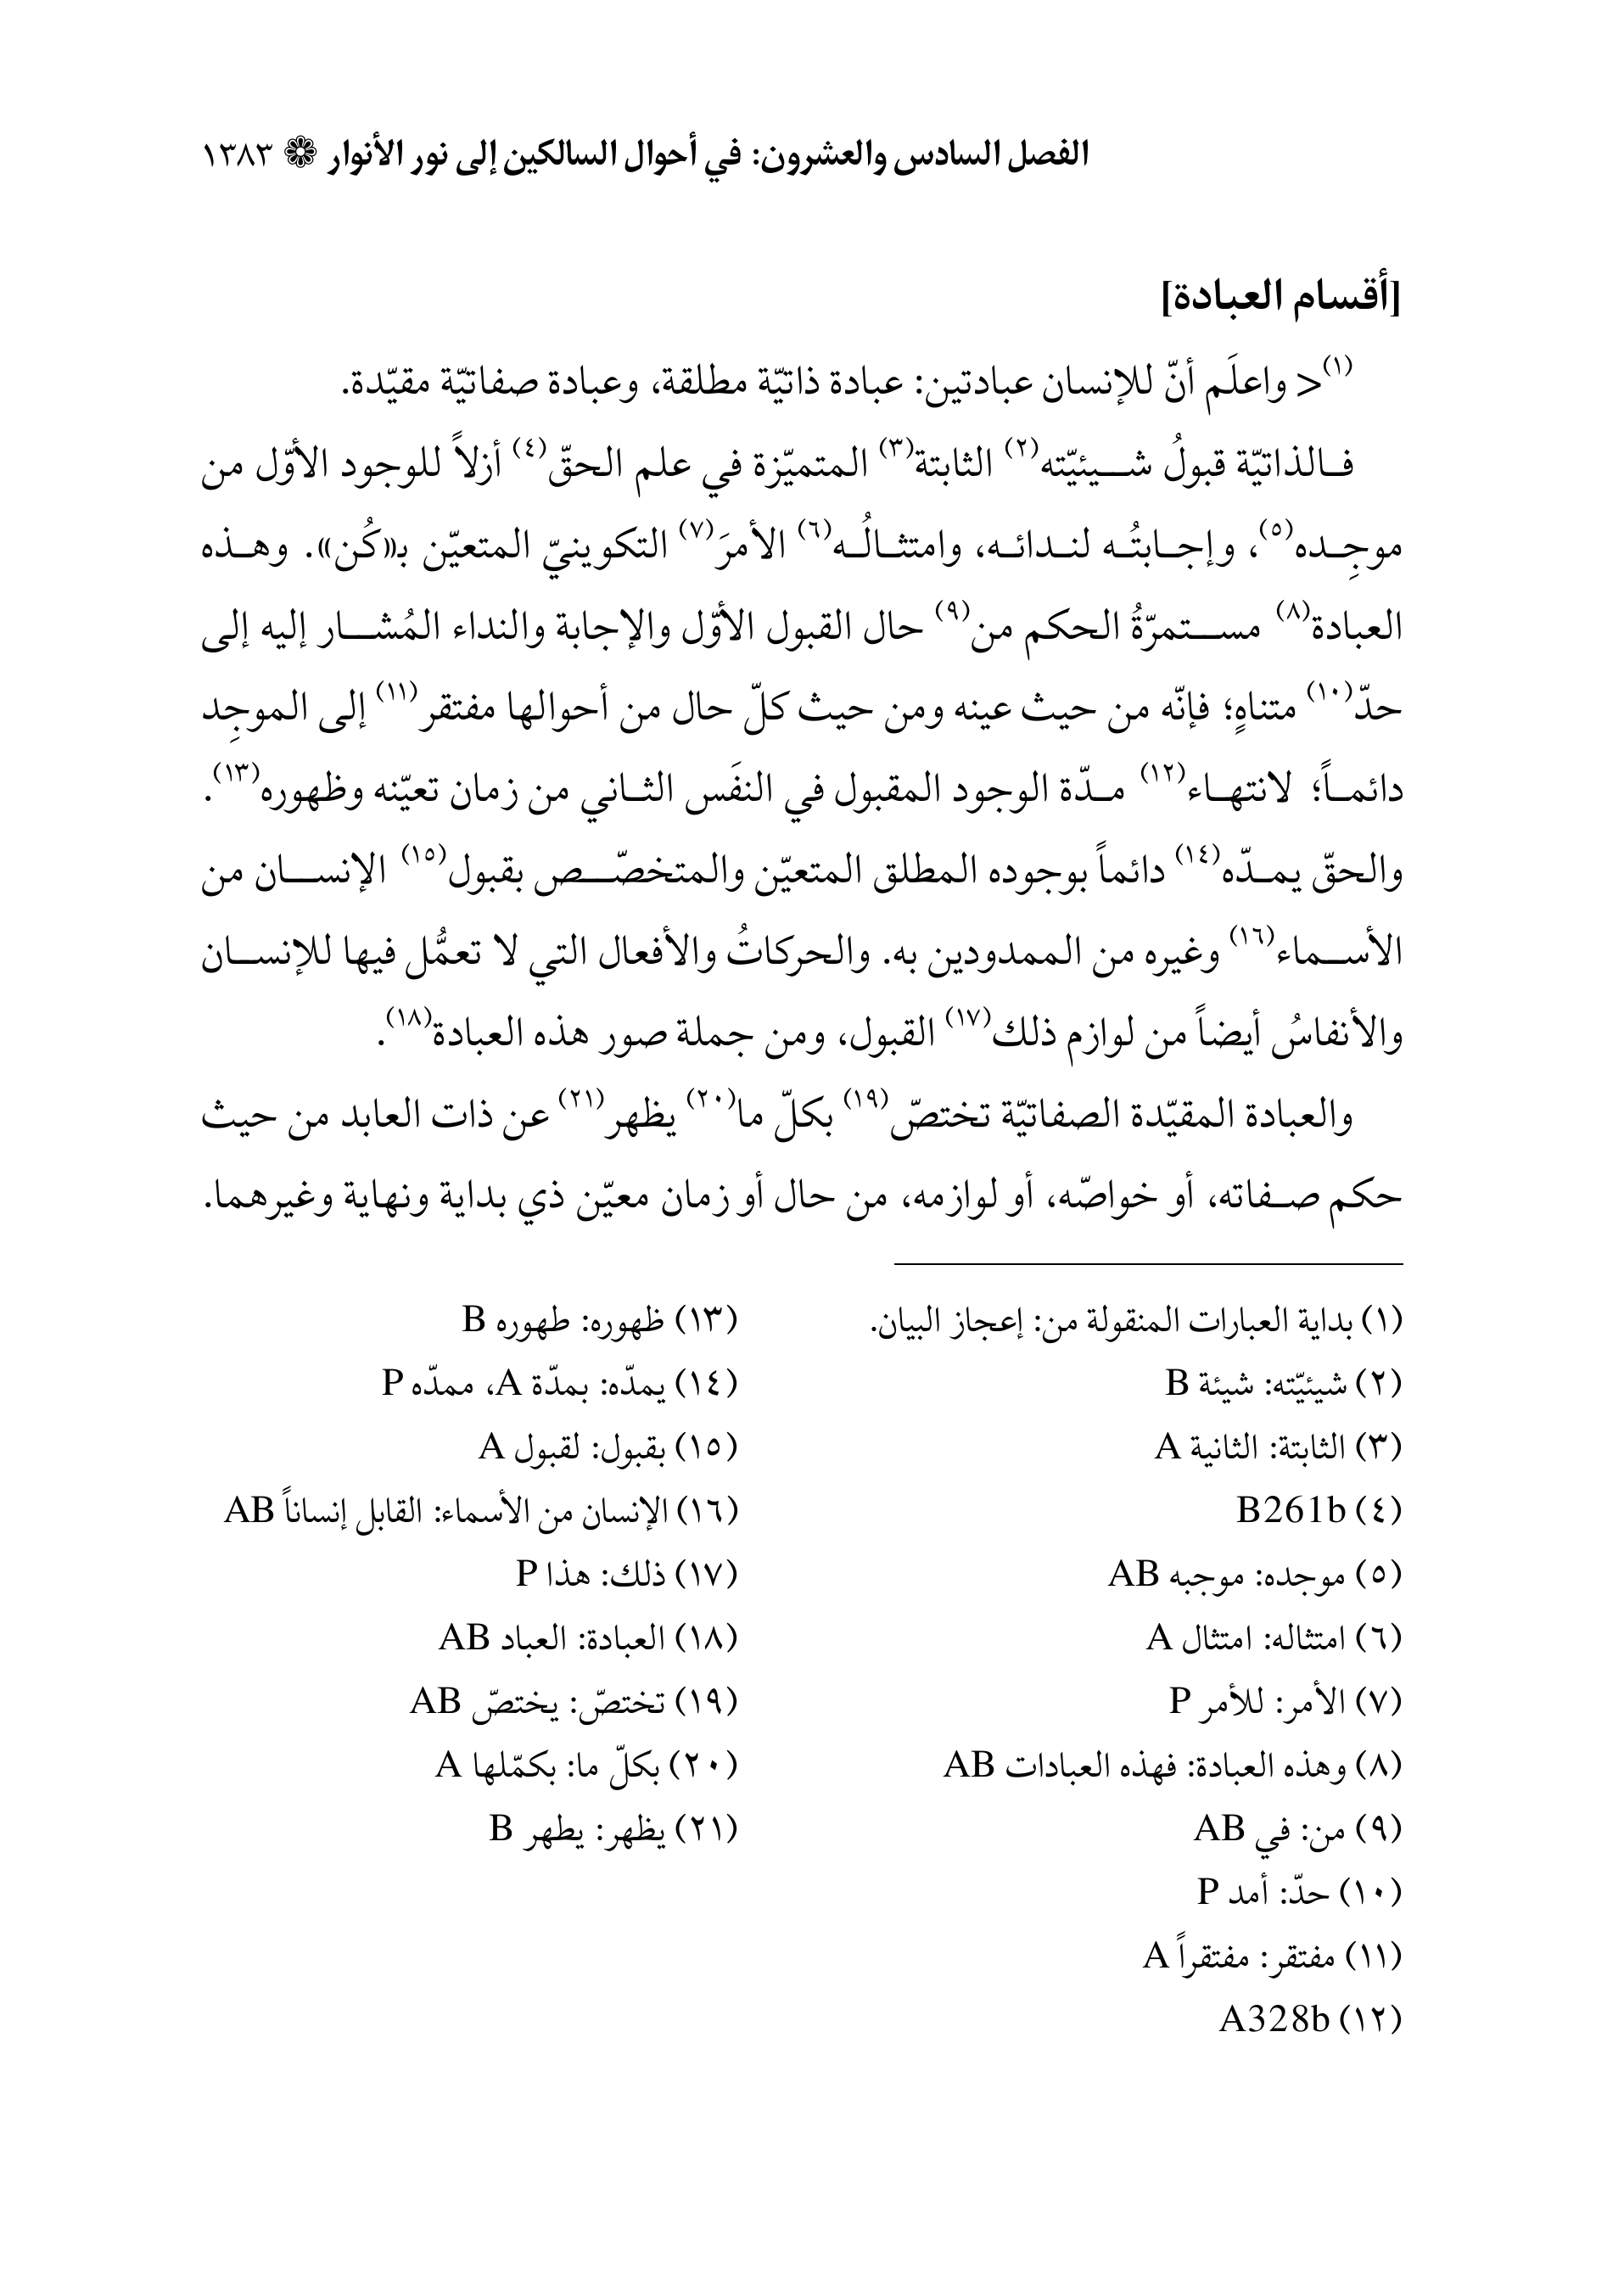 الفصل السادس والعشرون: في أحوال السالكين إلى نور الأنوار ❁ ١٣٨٣
[أقسام العبادة]
(١)< واعلَم أنّ للإنسان عبادتين: عبادة ذاتيّة مطلقة، وعبادة صفاتيّة مقيّدة.
فالذاتيّة قبولُ شيئيّته(٢) الثابتة(٣) المتميّزة في علم الحقّ(٤) أزلاً للوجود الأوّل من
موجِده(٥)، وإجابتُه لندائه، وامتثالُه(٦) الأمرَ(٧) التكوينيّ المتعيّن بـ«كُن». وهذه
العبادة(٨) مستمرّةُ الحكم من(٩) حال القبول الأوّل والإجابة والنداء المُشار إليه إلى
حدّ(١٠) متناهٍ؛ فإنّه من حيث عينه ومن حيث كلّ حال من أحوالها مفتقر(١١) إلى الموجِد
دائماً؛ لانتهاء(١٢) مدّة الوجود المقبول في النفَس الثاني من زمان تعيّنه وظهوره(١٣).
والحقّ يمدّه(١٤) دائماً بوجوده المطلق المتعيّن والمتخصّص بقبول(١٥) الإنسان من
الأسماء(١٦) وغيره من الممدودين به. والحركاتُ والأفعال التي لا تعمُّل فيها للإنسان
والأنفاسُ أيضاً من لوازم ذلك(١٧) القبول، ومن جملة صور هذه العبادة(١٨).
والعبادة المقيّدة الصفاتيّة تختصّ(١٩) بكلّ ما(٢٠) يظهر(٢١) عن ذات العابد من حيث
حكم صفاته، أو خواصّه، أو لوازمه، من حال أو زمان معيّن ذي بداية ونهاية وغيرهما.
(١) بداية العبارات المنقولة من: إعجاز البيان.
(٢) شيئيّته: شيئة B
(٣) الثابتة: الثانية A
(٤) B261b
(٥) موجده: موجبه AB
(٦) امتثاله: امتثال A
(٧) الأمر: للأمر P
(٨) وهذه العبادة: فهذه العبادات AB
(٩) من: في AB
(١٠) حدّ: أمد P
(١١) مفتقر: مفتقراً A
(١٢) A328b
(١٣) ظهوره: طهوره B
(١٤) يمدّه: بمدّة A، ممدّه P
(١٥) بقبول: لقبول A
(١٦) الإنسان من الأسماء: القابل إنساناً AB
(١٧) ذلك: هذا P
(١٨) العبادة: العباد AB
(١٩) تختصّ: يختصّ AB
(٢٠) بكلّ ما: بكمّلها A
(٢١) يظهر: يطهر B